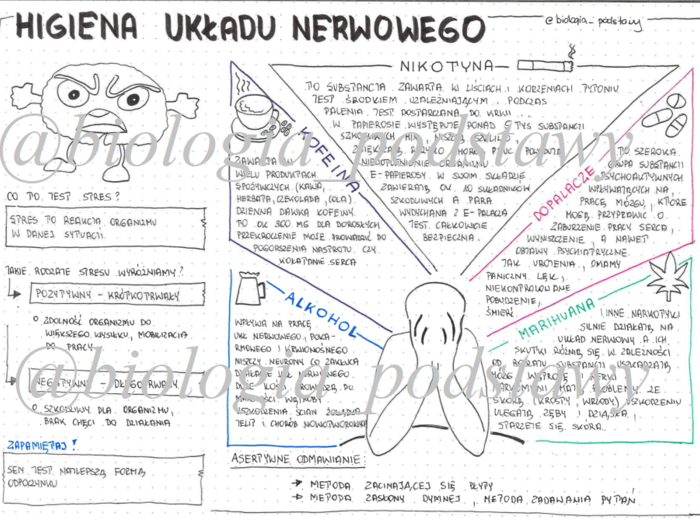 HIGIENA UKŁADU NERWOWEGO
@biologia_podstawy
CO TO JEST STRES?
STRES TO REAKCJA ORGANIZMU
W DANEJ SYTUACJI.
JAKIE RODZAJE STRESU WYRÓŻNIAMY?
POZYTYWNY - KRÓTKOTRWAŁY
ZDOLNOŚĆ ORGANIZMU DO
WIĘKSZEGO WYSIŁKU, MOBILIZACJA
DO PRACY
NEGATYWNY - DŁUGOTRWAŁY
SZKODLIWY DLA ORGANIZMU,
BRAK CHĘCI DO DZIAŁANIA
ZAPAMIĘTAJ!
SEN JEST NAJLEPSZĄ FORMĄ
ODPOCZYNKU
KOFEINA
ZAWARTA W
WIELU PRODUKTACH
SPOŻYWCZYCH (KAWA,
HERBATA, CZEKOLADA, COLA).
DZIENNA DAWKA KOFEINY
TO OK 300 MG DLA DOROSŁYCH
PRZEKROCZENIE MOŻE PROWADZIĆ DO
POGORSZENIA NASTROJU CZY
KOŁATANIE SERCA
NIKOTYNA
TO SUBSTANCJA ZAWARTA W LIŚCIACH I KORZENIACH TYTONIU
JEST ŚRODKIEM UZALEŻNIAJĄCYM. PODCZAS
PALENIA JEST DOSTARCZANA DO KRWI.
W PAPIEROSIE WYSTĘPUJE PONAD 5 TYS SUBSTANCJI
SZKODLIWYCH
ZWIĘKSZAJĄ RYZYKO
NIEDOTLENIENIE ORGANIZMU
E-PAPIEROSY W SWOIM SKŁADZIE
ZAWIERAJĄ OK. 10 SKŁADNIKÓW
SZKODLIWYCH A PARA
WYDYCHANA Z E-PALACZA
JEST CAŁKOWICIE
BEZPIECZNA.
DOPALACZE
TO SZEROKA
GRUPA SUBSTANCJI
PSYCHOAKTYWNYCH
WPŁYWAJĄCYCH NA
PRACĘ MÓZGU, KTÓRE
MOGĄ PRZYPRAWIĆ O
ZABURZENIE PRACY SERCA,
WYNISZCZENIE, A NAWET
OBJAWY PSYCHIATRYCZNE
JAK UROJENIA, OMAMY
PANICZNY LĘK,
NIEKONTROLOWANE
POBUDZENIE,
ŚMIERĆ
ALKOHOL
WPŁYWA NA PRACĘ
UKŁ NERWOWEGO, POKAR-
MOWEGO I KRWIONOŚNEGO
NISZCZY NEURONY CO ZAKŁÓCA
DZIAŁANIE
USZKODZENIA ŚCIAN ŻOŁĄDKA
JELIT I CHORÓB NOWOTWOROWYCH
MARIHUANA
I INNE NARKOTYKI
SILNIE DZIAŁAJĄ NA
UKŁAD NERWOWY A ICH
SKUTKI RÓŻNIĄ SIĘ W ZALEŻNOŚCI
OD RODZAJU SUBSTANCJI. USZKADZAJĄ
MÓZG, WĄTROBĘ I NERKI
PROBLEMY ZE
SKÓRĄ (KROSTY, WRZODY) USZKODZENIU
ULEGAJĄ ZĘBY I DZIĄSŁA,
STARZEJE SIĘ SKÓRA.
ASERTYWNE ODMAWIANIE:
METODA ZACINAJĄCEJ SIĘ PŁYTY
METODA ZASŁONY DYMNEJ, METODA ZADAWANIA PYTAŃ
@biologia_podstawy
@biologia_podstawy